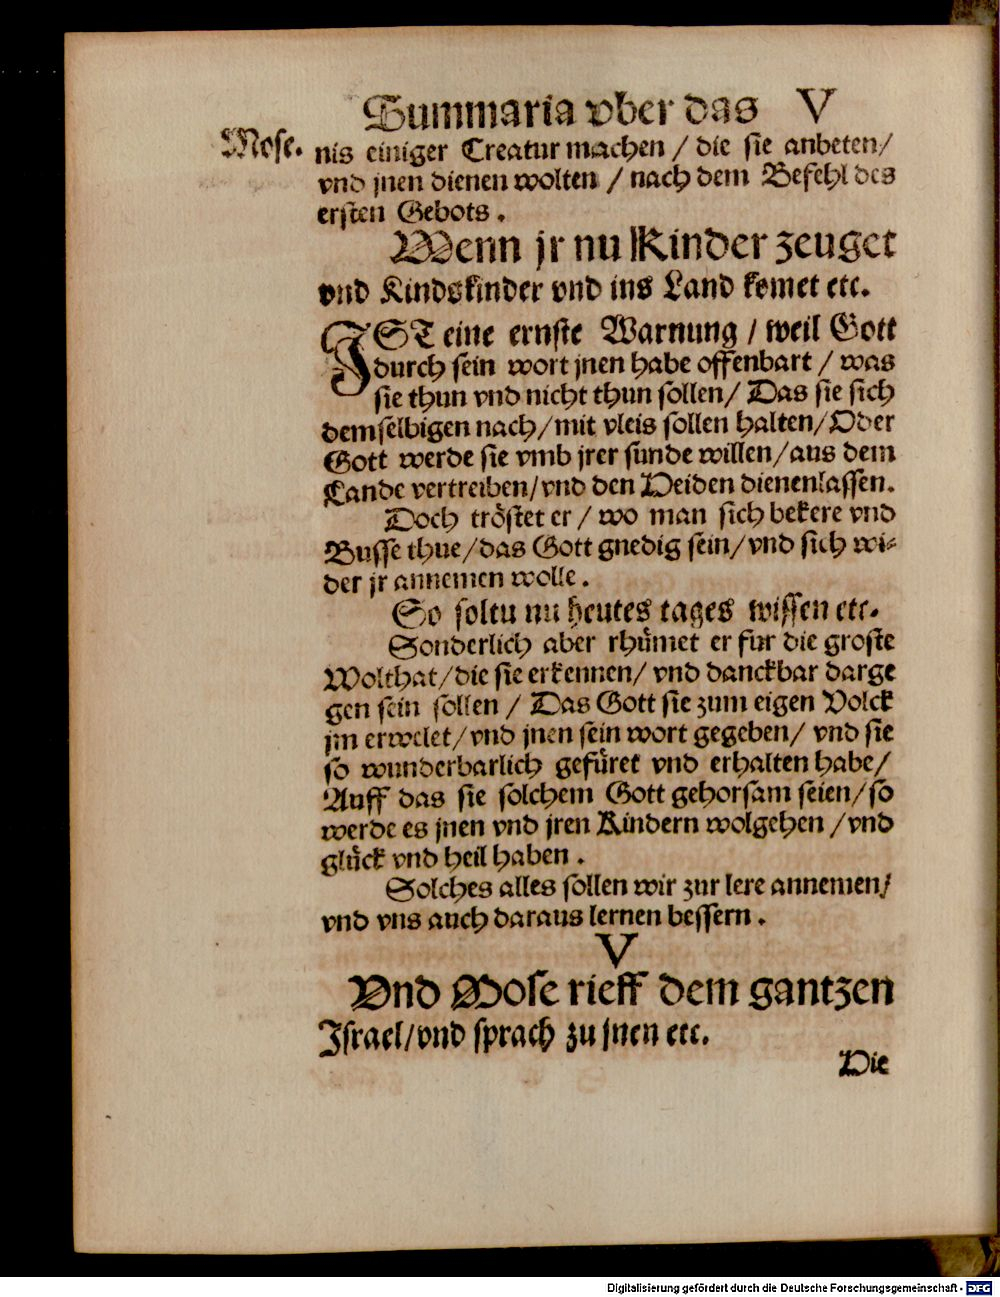 Summaria vber das V
Mose.
nis einiger Creatur machen / die sie anbeten/
vnd jnen dienen wolten / nach dem Befehl des
ersten Gebots .
Wenn jr nu Kinder zeuget
vnd Kindskinder vnd ins Land komet etc.
JST eine ernste Warnung / weil Gott
durch sein wort jnen habe offenbart / was
sie thun vnd nicht thun sollen/ Das sie sich
demselbigen nach/mit vleis sollen halten/Oder
Gott werde sie vmb jrer sünde willen/aus dem
Lande vertreiben/vnd den Heiden dienenlassen.
Doch tröstet er / wo man sich bekere vnd
Busse thue/das Gott gnedig sein/vnd sich wi-
der jr annemen wolle .
So soltu nu heutes tages wissen etc.
Sonderlich aber rhümet er für die groste
Wolthat/die sie erkennen/ vnd danckbar darge
gen sein sollen / Das Gott sie zum eigen Volck
jm erwelet/vnd jnen sein wort gegeben/ vnd sie
so wunderbarlich gefüret vnd erhalten habe/
Auff das sie solchem Gott gehorsam seien/so
werde es jnen vnd jren Kindern wolgehen /vnd
glück vnd heil haben .
Solches alles sollen wir zur lere annemen/
vnd vns auch daraus lernen bessern .
V
Vnd Mose rieff dem gantzen
Israel/vnd sprach zu jnen etc.
Die
Digitalisierung gefördert durch die Deutsche Forschungsgemeinschaft - DFG